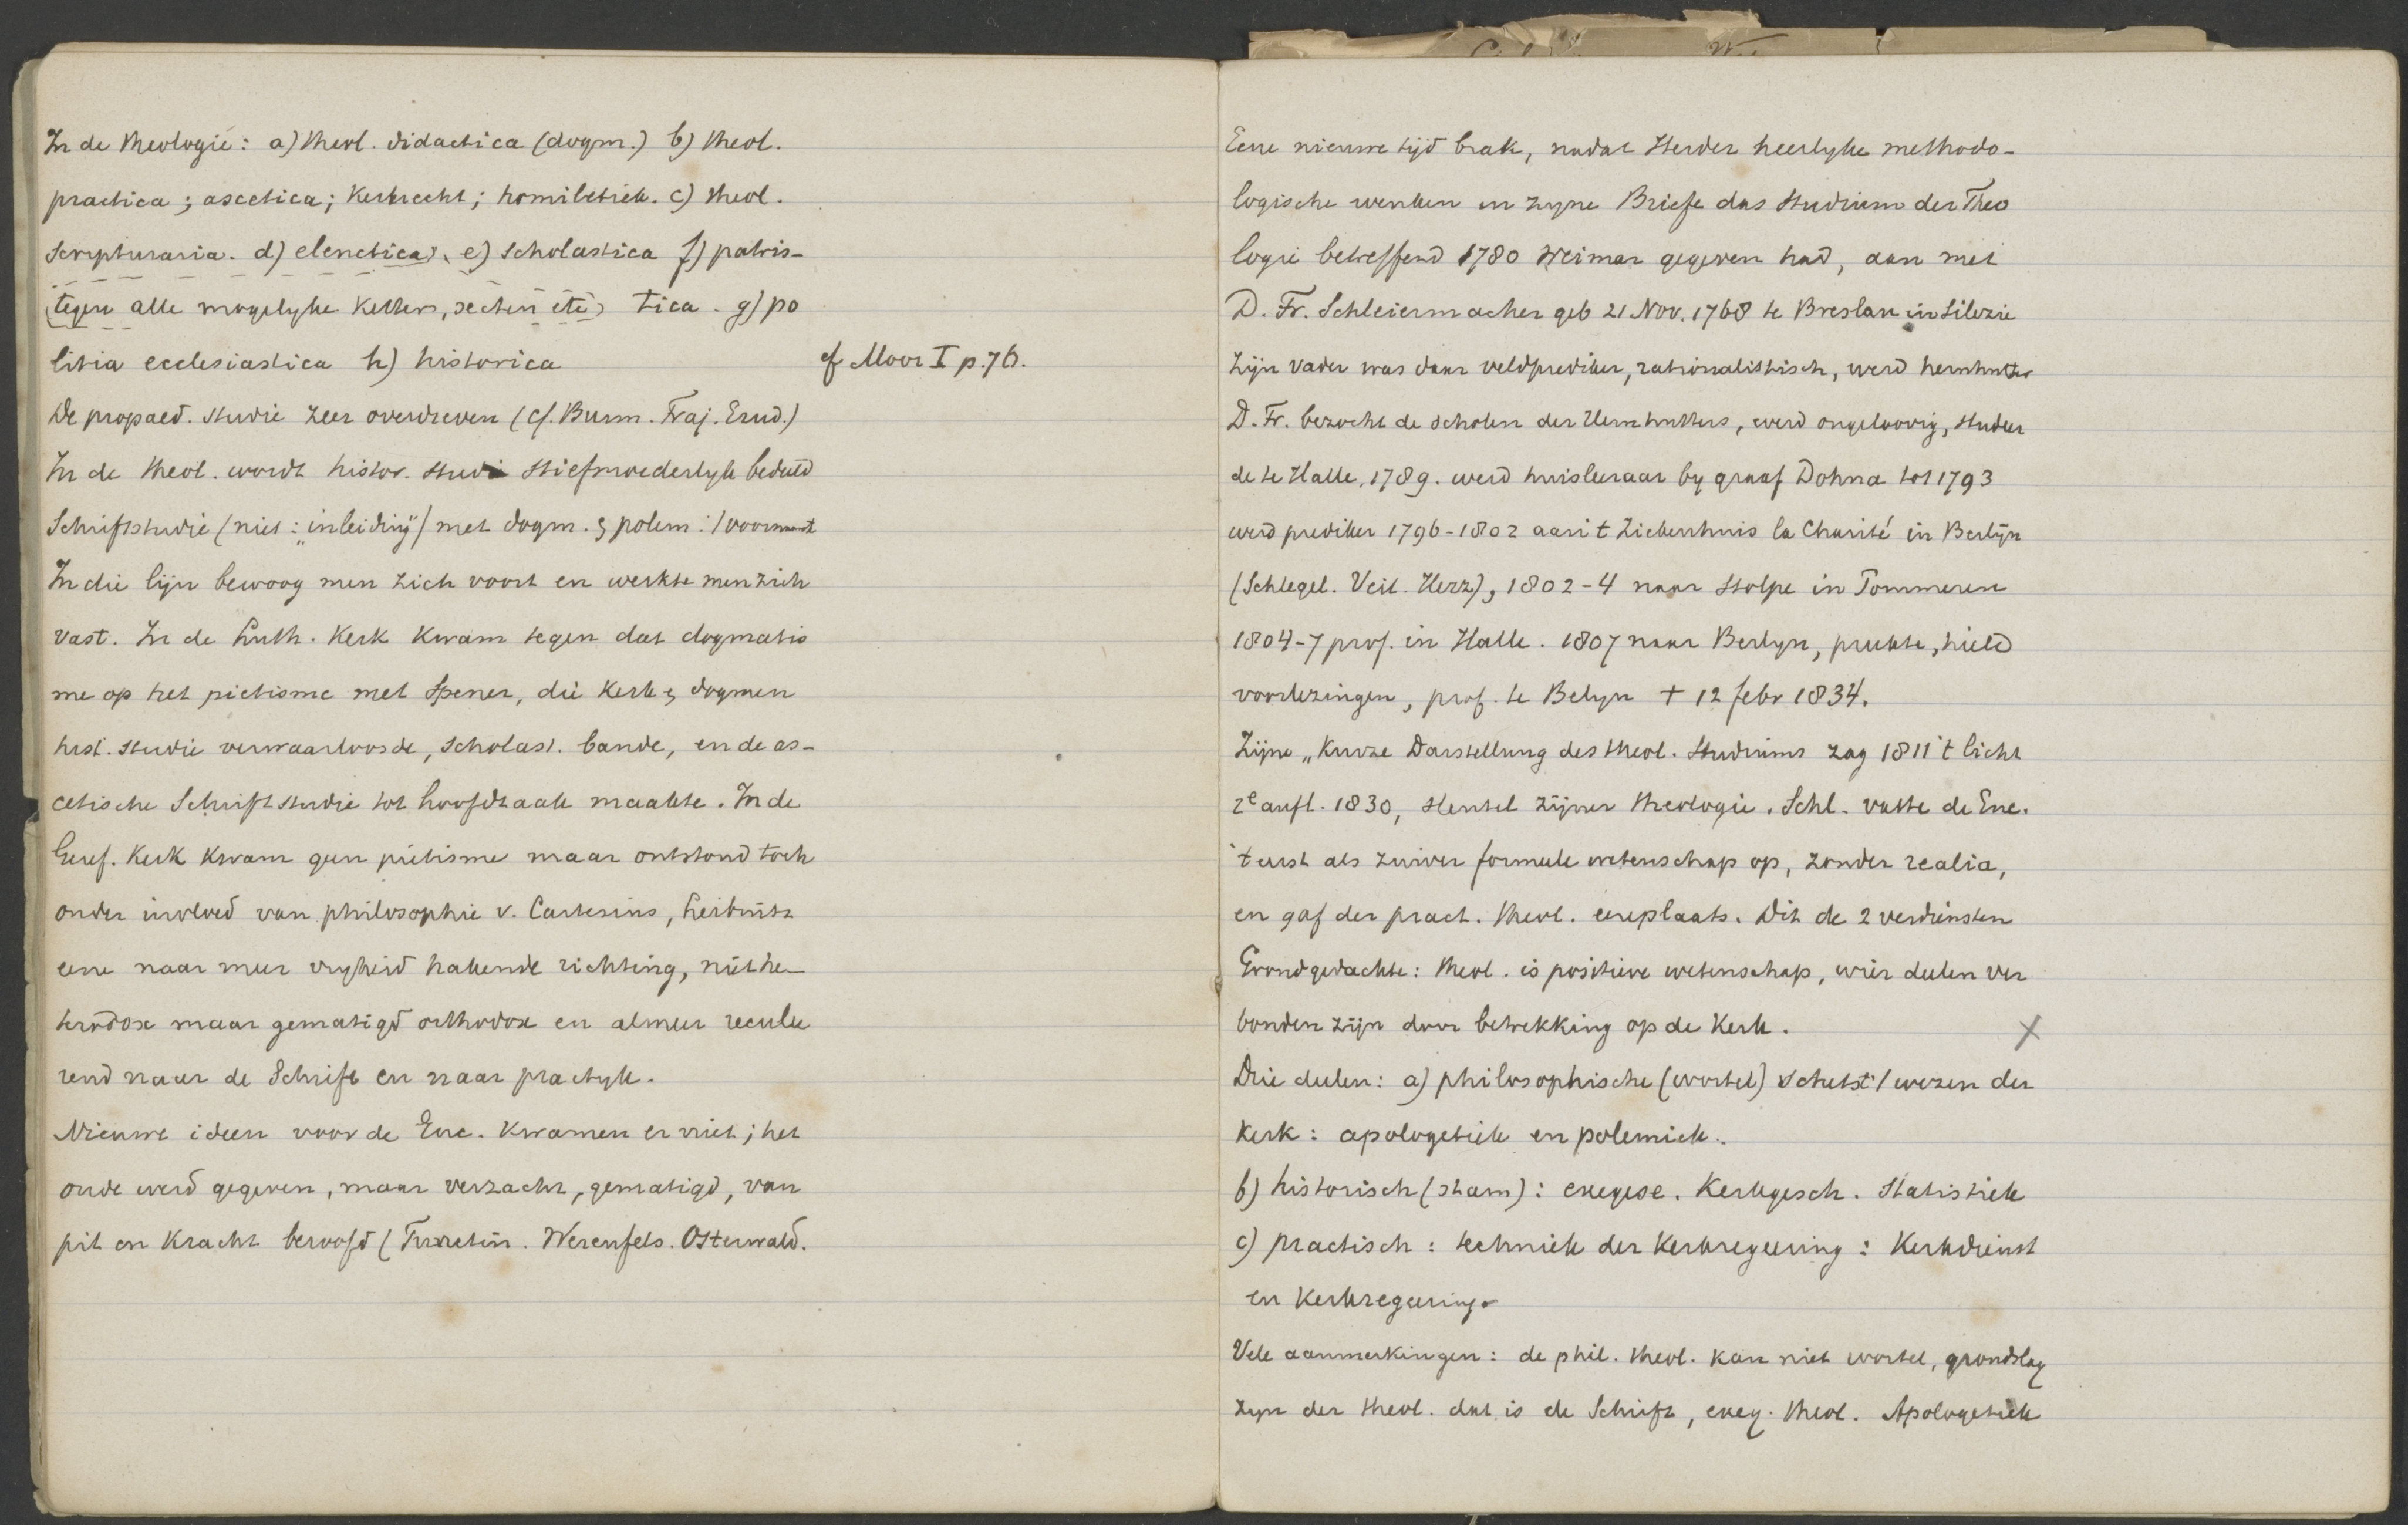 In de theologie: a) theol. didactica (dogm.) b) theol.
practica; ascetica; kerkrecht; homiletiek. c) theol.
scripturaria. d) elenctica, e) scholastica f) patris-
(tegen alle mogelyke ketters, secten etc) tica. g) po
litia ecclesiastica h) historica
cf Moor I p. 76.
De propaed. studie zeer overdreven (cf. Burm. Traj. Erud.)
In de theol. wordt histor. studi stiefmoederlyk bedeeld
Schriftstudie (niet: „inleiding") met dogm. & polem:
In die lijn bewoog men zich voort en werkte men zich
vast. In de Luth. Kerk kwam tegen dat dogmatis
me op het pietisme met Spener, die kerk & dogmen
hist. studie verwaarloosde, scholast. bande, en de as-
cetische Schriftstudie tot hoofdzaak maakte. In de
Geref. Kerk kwam geen pietisme maar ontstond toch
onder invloed van philosophie v. Cartesius, Leibnitz
eene naar meer vryheid hakende richting, niet he-
terodox maar gematigd orthodox en almeer recule
rend naar de Schrift en naar practyk.
Nieuwe ideen voor de Enc. kwamen er niet; het
oude werd gegeven, maar verzacht, gematigd, van
pit en kracht beroofd (Turretin. Werenfels. Osterwald.
Eene nieuwe tijd brak, nadat Herder heerlyke methodo-
logische wenken in zyne Briefe das Studium der Theo
logie betreffend 1780 Weimar gegeven had, aan met
D. Fr. Schleiermacher geb 21 Nov. 1768 te Breslau in Silezie
Zijn vader was daar veldprediker, rationalistisch, werd hernhutter
D. Fr. bezocht de scholen der Hernhutters, werd ongeloovig, studeer
de te Halle, 1789. werd huisleeraar by graaf Dohna tot 1793
werd prediker 1796-1802 aan 't Ziekenhuis la Charité in Berlijn
(Schlegel. Veit. Herz), 1802-4 naar Stolpe in Pommeren
1804-7 prof. in Halle. 1807 naar Berlyn, preekte, hield
voorlezingen, prof. te Belyn † 12 febr 1834.
Zijne „Kurze Darstellung des theol. Studiums zag 1811 't licht
2e aufl. 1830, sleutel zijner theologie. Schl. vatte de Enc.
't eerst als zuiver formeele wetenschap op, zonder realia,
en gaf der pract. theol. eereplaats. Dit de 2 verdiensten
Grondgedachte: theol. is positieve wetenschap, wier deelen ver
bonden zijn door betrekking op de Kerk. X
Drie deelen: a) philosophische (wortel) schetst / wezen der
Kerk: apologetiek en polemiek.
b) historisch (stam): exegese. Kerkgesch. Statistiek
c) practisch: techniek der kerkregeering: Kerkdienst
en kerkregeering.
Vele aanmerkingen: de phil. theol. kan niet wortel, grondslag
zyn der theol. dat is de Schrift, exeg. theol. Apologetiek